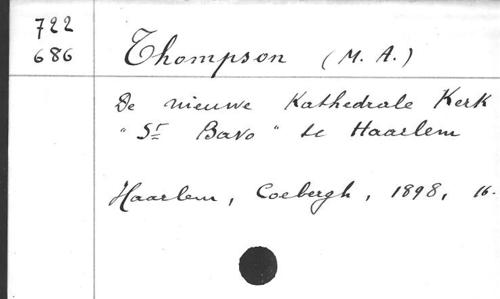 722
686
Thompson (M. A.)
De nieuwe Kathedrale Kerk
"St Bavo" te Haarlem
Haarlem, Coebergh, 1898, 16.